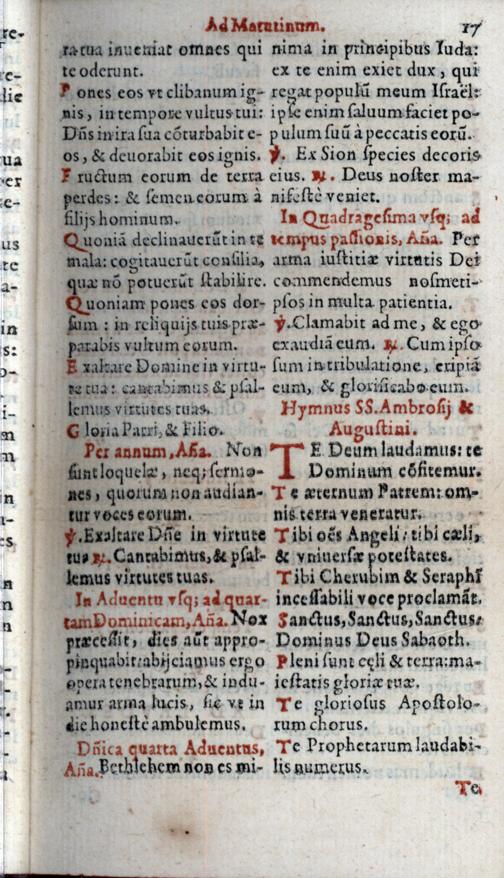 Ad Matutinum. 17
ra tua inueniat omnes qui
te oderunt.
Pones eos vt clibanum ig-
nis, in tempore vultus tui:
Dñs in ira sua cōturbabit e-
os, & deuorabit eos ignis.
Fructum eorum de terra
perdes: & semen eorum à
filijs hominum.
Quoniā declinauerūt in te
mala: cogitauerūt consilia,
quæ nō potuerūt stabilire.
Quoniam pones eos dor-
sum: in reliquijs tuis præ-
parabis vultum eorum.
Exaltare Domine in virtu-
te tua: cantabimus & psal-
lemus virtutes tuas.
Gloria Patri, & Filio.
Per annum, Aña. Non
sunt loquelæ, neq; sermo-
nes, quorum non audian-
tur voces eorum.
℣. Exaltare Dñe in virtute
tua ℟. Cantabimus, & psal-
lemus virtutes tuas.
In Aduentu vsq; ad quar-
tam Dominicam, Aña. Nox
præcessit, dies aūt appro-
pinquabit: abijciamus ergo
opera tenebrarum, & indu-
amur arma lucis, sic vt in
die honestè ambulemus.
Dñica quarta Aduentus,
Aña. Bethlehem non es mi-
nima in principibus Iuda:
ex te enim exiet dux, qui
regat populū meum Israël:
ipse enim saluum faciet po-
pulum suū à peccatis eorū.
℣. Ex Sion species decoris
eius. ℟. Deus noster ma-
nifestè veniet.
In Quadragesima vsq; ad
tempus passionis, Aña. Per
arma iustitiæ virtutis Dei
commendemus nosmeti-
psos in multa patientia.
℣. Clamabit ad me, & ego
exaudiā eum. ℟. Cum ipso
sum in tribulatione, eripiā
eum, & glorificabo eum.
Hymnus SS. Ambrosij &
Augustini.
TE Deum laudamus: te
Dominum cōfitemur.
Te æternum Patrem: om-
nis terra veneratur.
Tibi oēs Angeli: tibi cæli,
& vniuersæ potestates.
Tibi Cherubim & Seraphī
incessabili voce proclamāt.
Sanctus, Sanctus, Sanctus:
Dominus Deus Sabaoth.
Pleni sunt cęli & terra: ma-
iestatis gloriæ tuæ.
Te gloriosus Apostolo-
rum chorus.
Te Prophetarum laudabi-
lis numerus.
Te